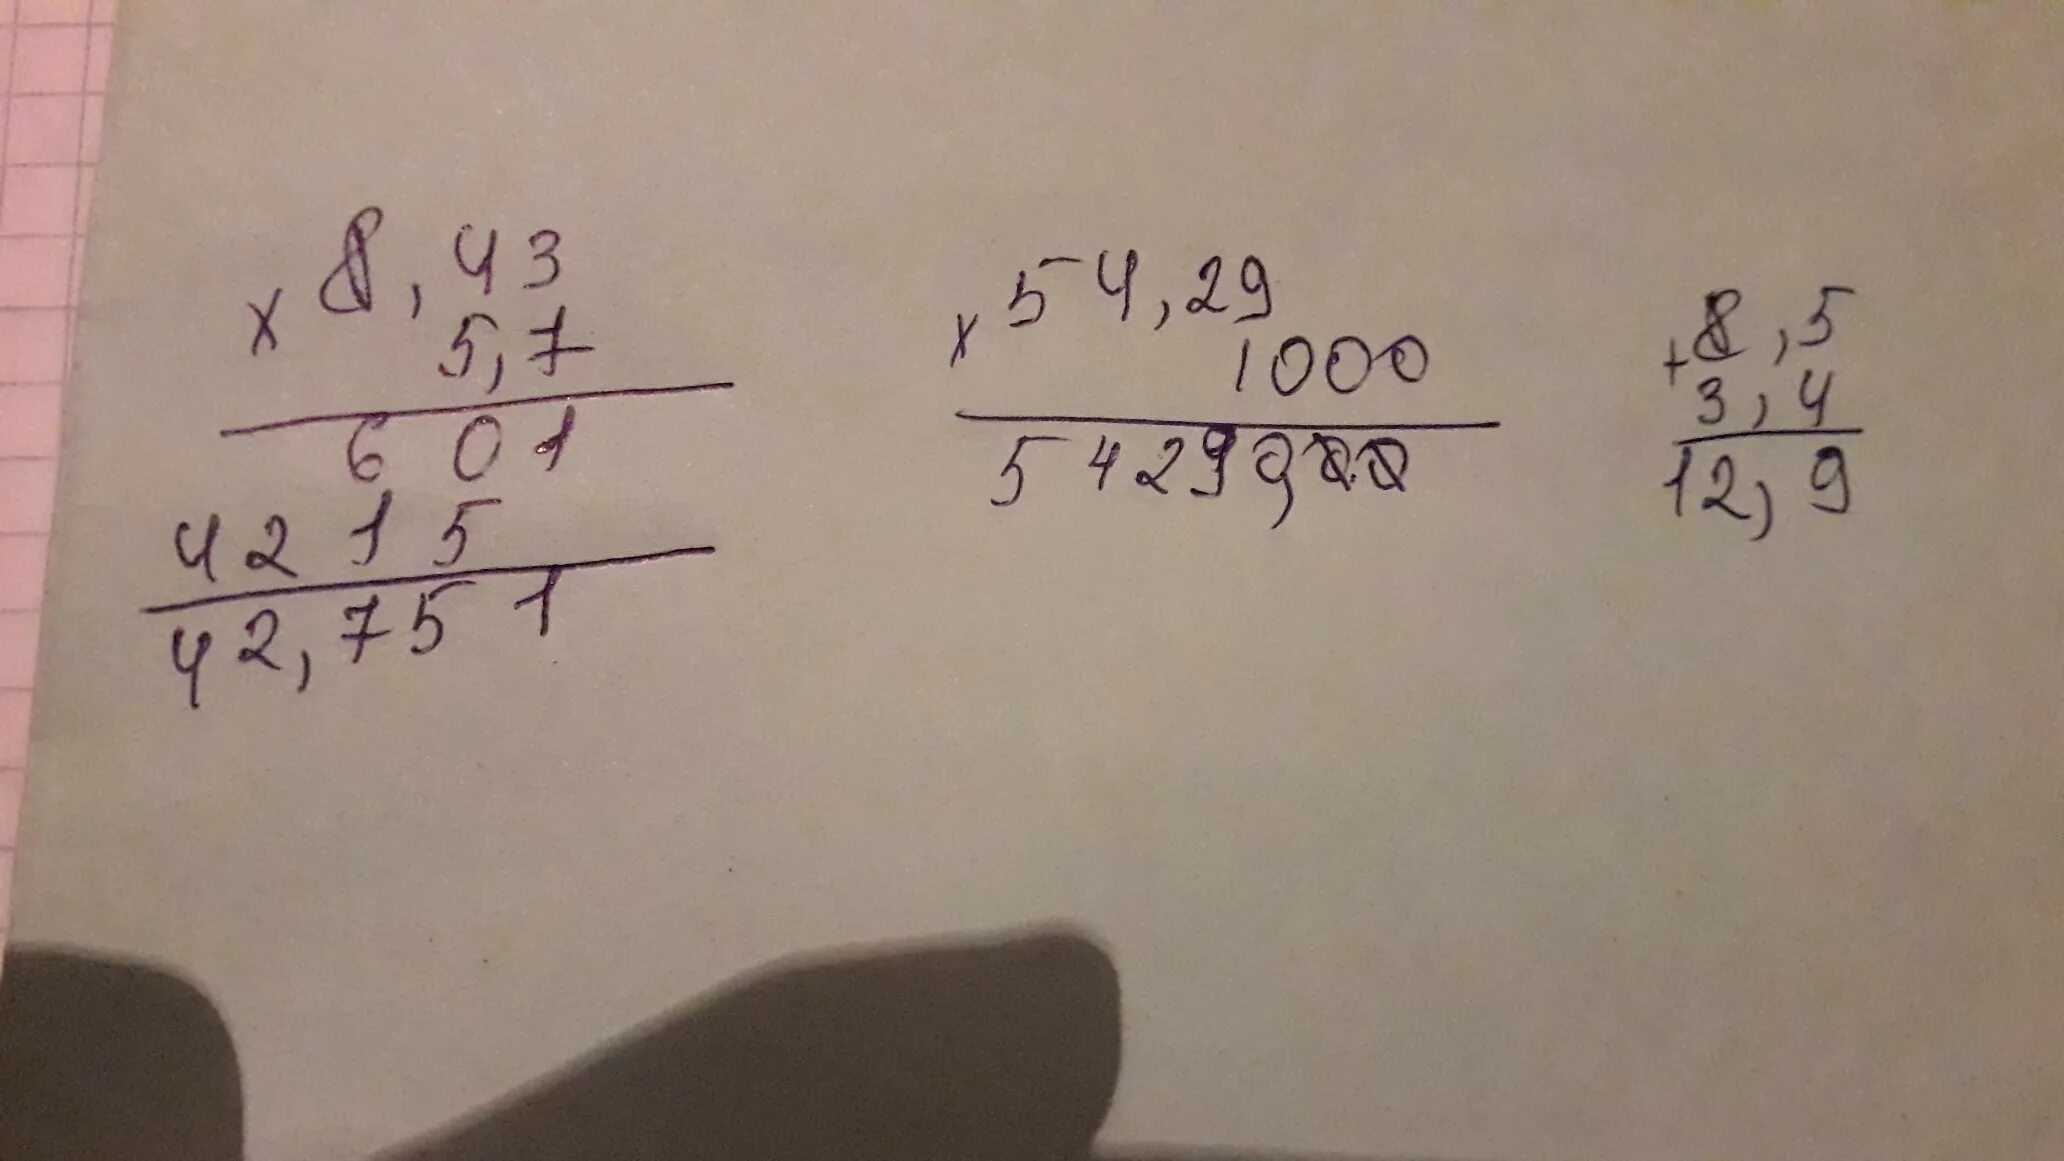 × 8,43
5,7
601
4215
42,751
× 54,29
1000
54290,00
+ 8,5
3,4
12,9